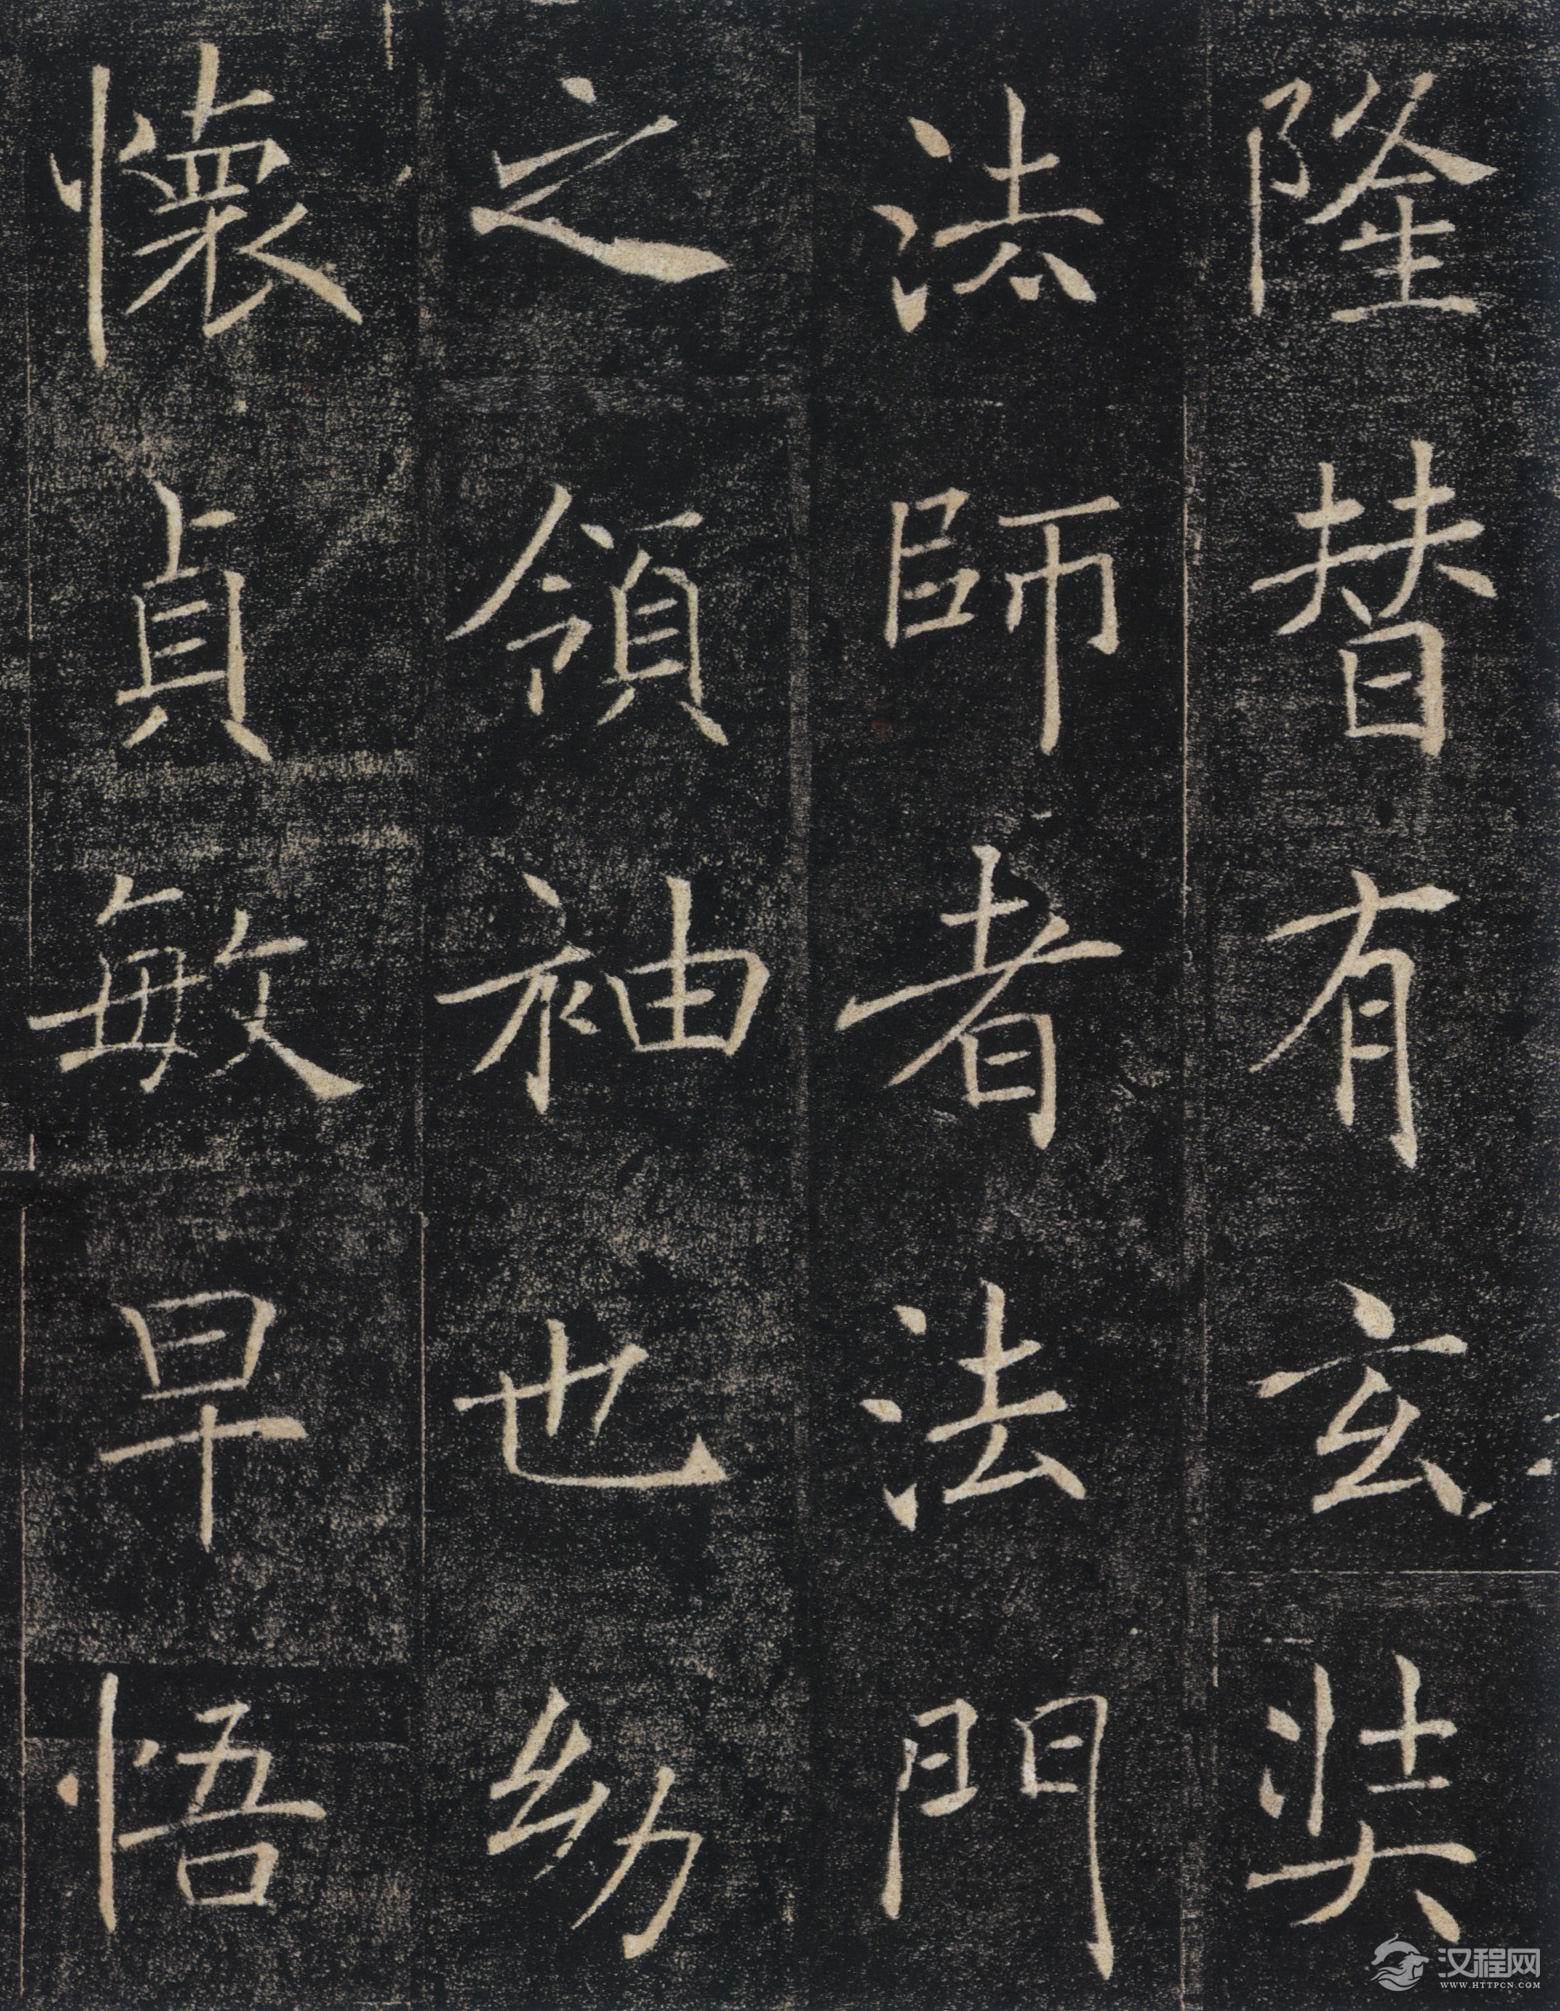 隆替有玄奘
法師者法門
之領袖也幼
懷貞敏早悟
汉程网
WWW.HTTPCN.COM